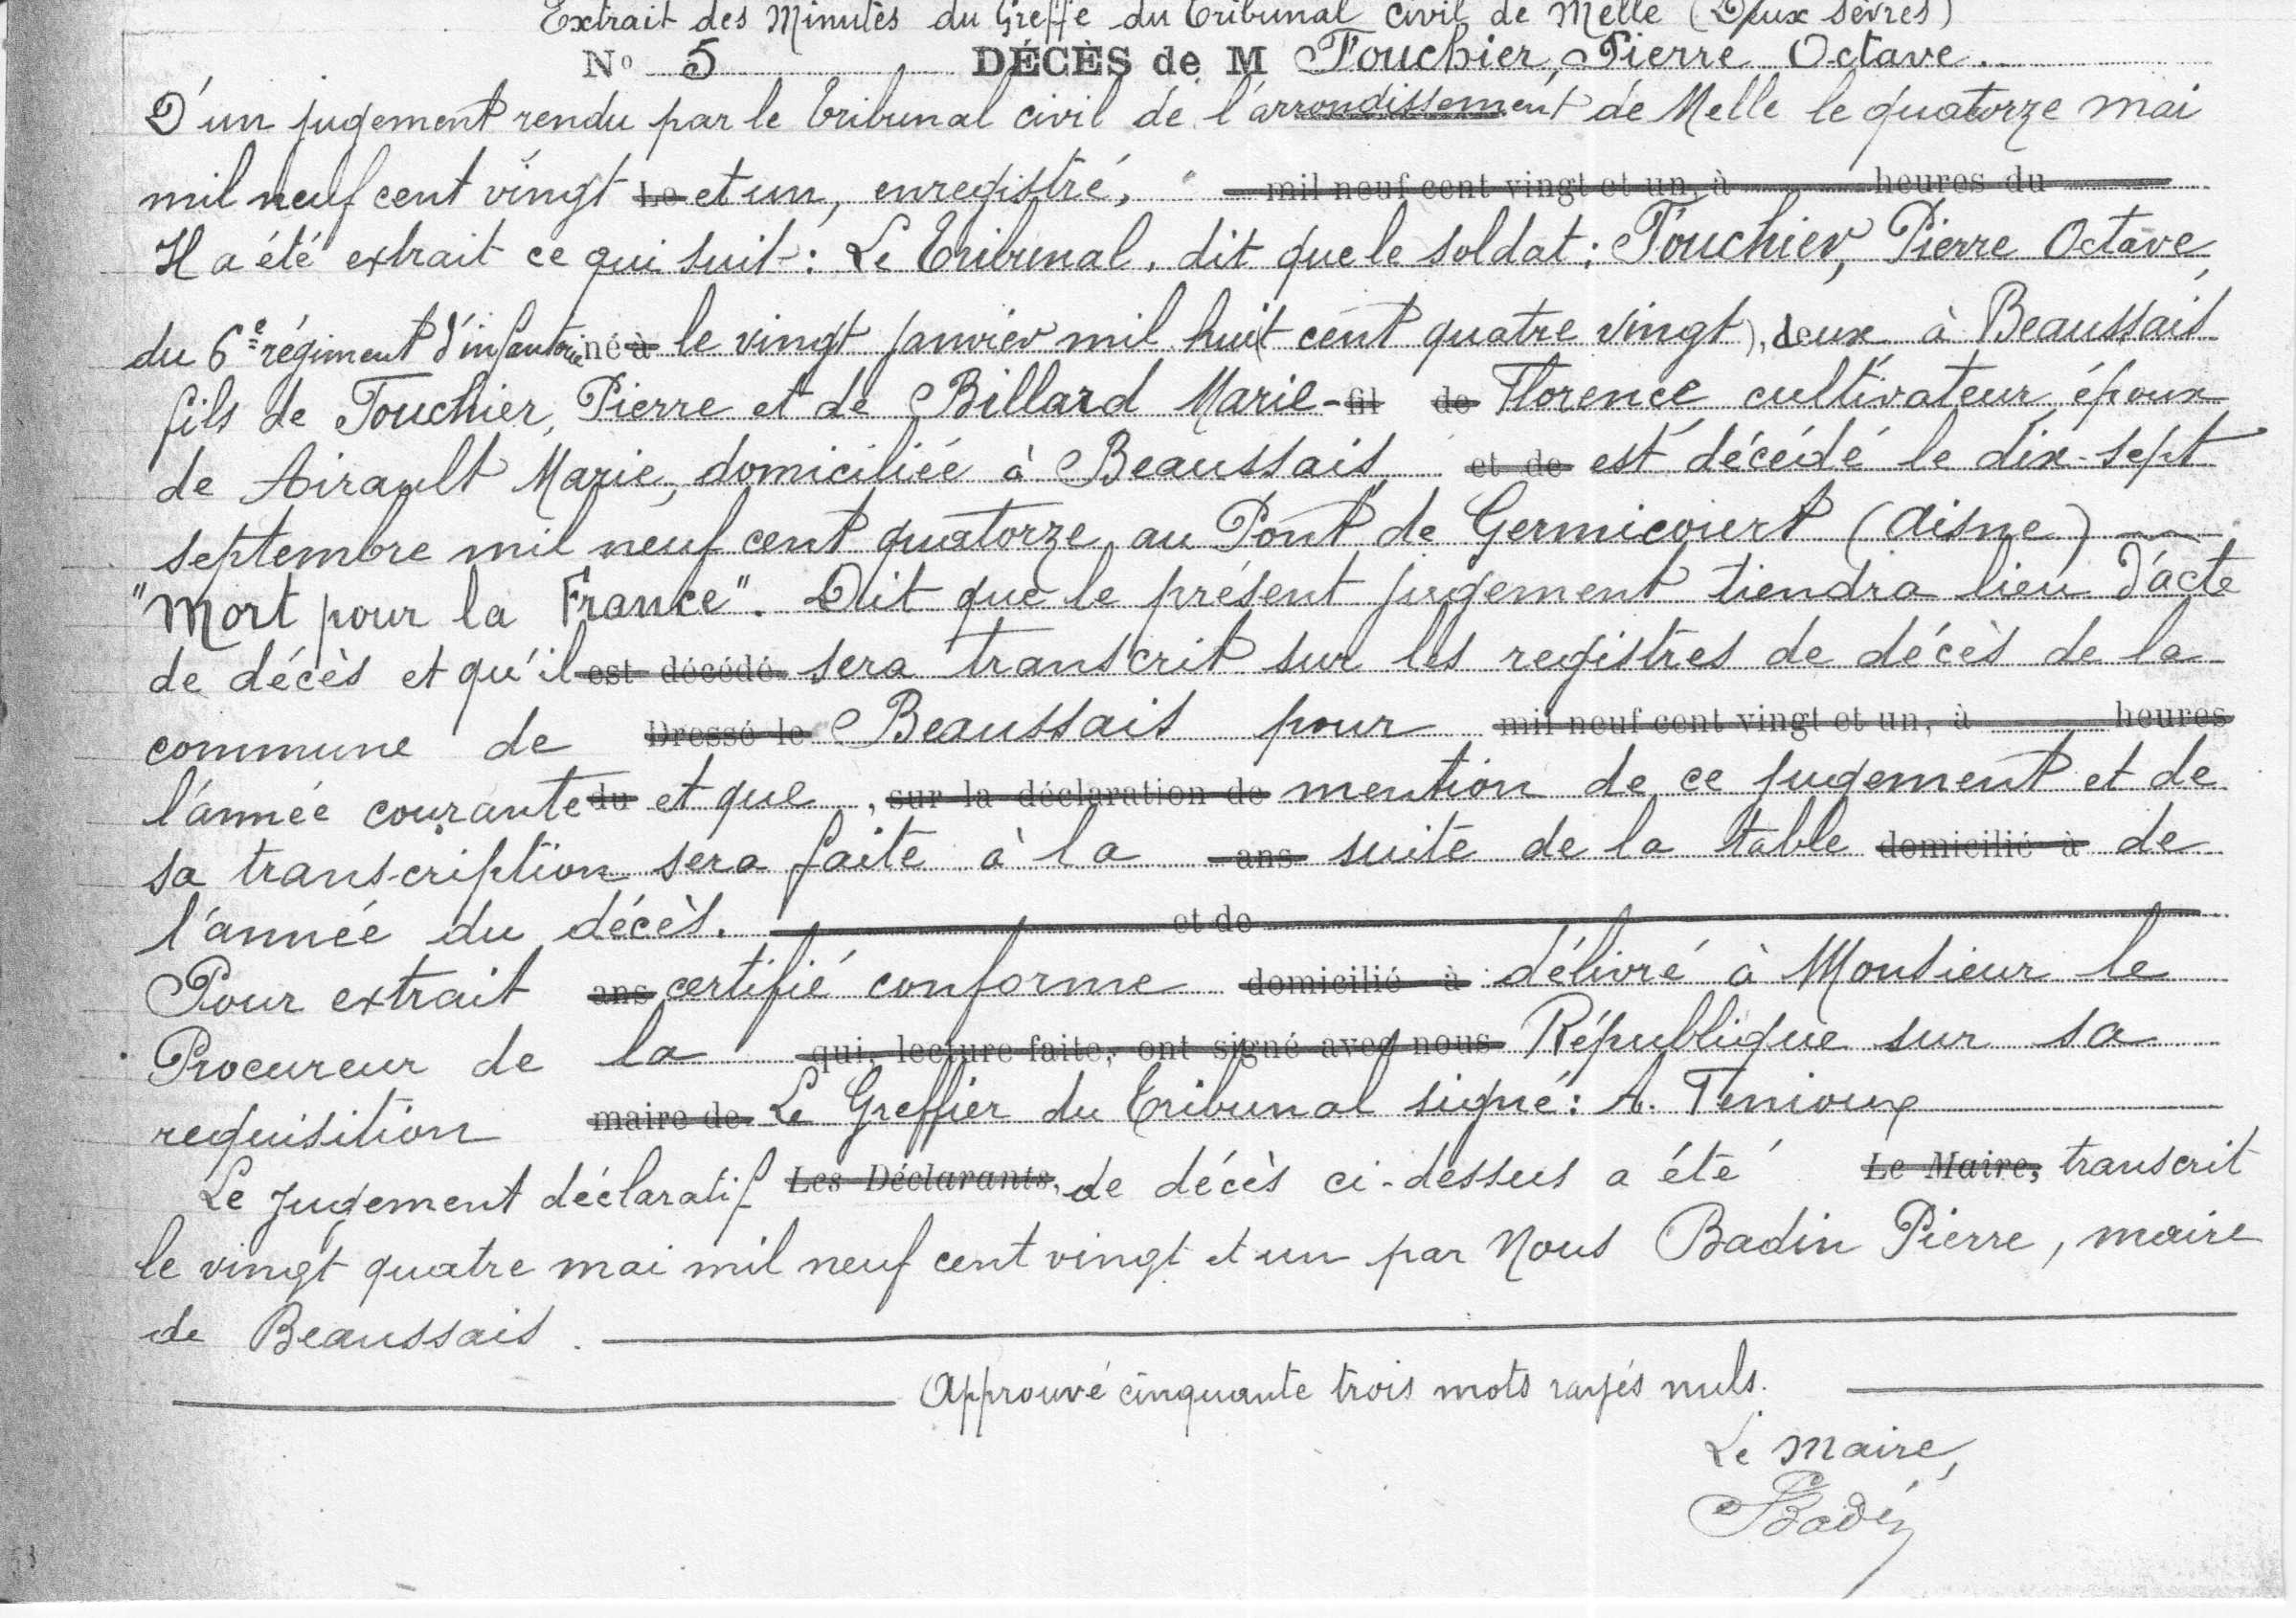 Extrait des Minutes du Greffe du Tribunal civil de Melle (Deux Sèvres)
No 5 DÉCÈS de M Fouchier, Pierre Octave.
D'un jugement rendu par le tribunal civil de l'arrondissement de Melle le quatorze mai
mil neuf cent vingt Le et un, enregistré, mil neuf cent vingt et un, à heures du
Il a été extrait ce qui suit : Le Tribunal, dit que le soldat : Fouchier, Pierre Octave,
du 6e régiment d'infanterie né à le vingt janvier mil huit cent quatre vingt, deux à Beaussais
fils de Fouchier, Pierre et de Billard Marie- fil de Florence, cultivateur, époux
de Airault Marie, domiciliée à Beaussais, et de est décédé le dix-sept
septembre mil neuf cent quatorze au Pont de Germicourt (Aisne)
"Mort pour la France". Dit que le présent jugement tiendra lieu d'acte
de décès et qu'il est décédé sera transcrit sur les registres de décès de la
commune de Dressé le Beaussais pour mil neuf cent vingt et un, à heures
l'année courante du et que , sur la déclaration de mention de ce jugement et de
sa transcription sera faite à la ans suite de la table domicilié à de
l'année du décès. et de
Pour extrait ans certifié conforme domicilié à délivré à Monsieur le
Procureur de la qui, lecture faite, ont signé avec nous République sur sa
requisition maire de Le Greffier du Tribunal signé : A.
Le Jugement déclaratif Les Déclarants, de décès ci-dessus a été Le Maire, transcrit
le vingt quatre mai mil neuf cent vingt et un par Nous Badin Pierre, maire
de Beaussais.
Approuvé cinquante trois mots rayés nuls.
Le Maire,
PBadin